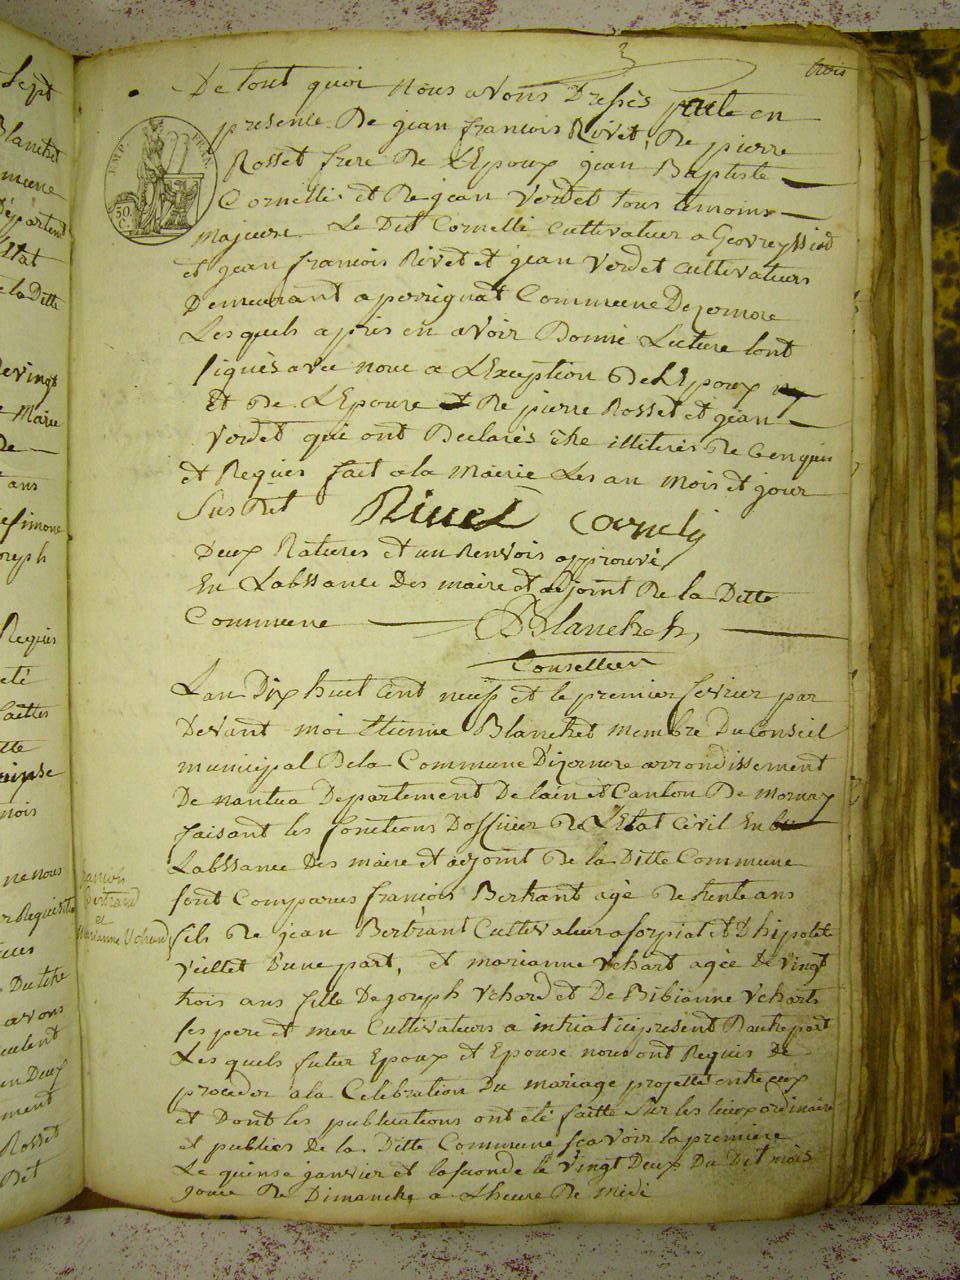 3
trois
De tout quoi nous avons Dressés acte en
presence De jean francois Rivet, De pierre
Rosset frere De L'Epoux jean Baptiste
Cornelli et De jean Verdet tous temoins
majeure Le Dit Cornelli cultivateur a Geovreyssiad
et jean francois Rivet et jean Verdet cultivateurs
Demeurant a perrignat Commune Dezernore
Les quels apres en avoir Donné Lecture lont
signés avec nous a L'Exception De L'Epoux
Et De L'Epouse et De pierre Rosset et jean
Verdet qui ont Declarés être illiterés De ce enquis
et Requis fait a la Mairie Les an mois et jour
Sus Dit Rivet Cornely
Deux Ratures et un Renvois approuvé
En Labssance Des maire et adjoint De la Ditte
Commune Blanchet,
Conseiller
Lan Dix huit cent neuf et le premier fevrier par
Devant moi Etienne Blanchet membre Du Conseil
municipal De la Commune Dizernore arrondissement
De nantua Departement De lain et Canton De mornay
faisant les fonctions Dofficier De L'Etat Civil En
Labssance Des maire et adjoint De la Ditte Commune
sont Comparus francois Bertrant agé De trente ans
fils De jean Bertrant Cultivateur a sorpiat et D'hipolete
Veillet D'une part, et marianne Vchart agée De Vingt
trois ans fille De joseph Vchard et De Bibianne Vcharts
ses pere et mere Cultivateurs a intriat ici present Dautre part
Les quels futur Epoux et Epouse nous ont Requis De
proceder a la Celebration Du mariage projetté entre eux
et Dont les publications ont eté faitte Sur les lieux ordinaire
et publics De la Ditte Commune sçavoir la premiere
Le quinse janvier et la seconde le Vingt Deux Du Dit mois
jour De Dimanche a Lheure De midi
francois
bertrand
et
Marianne Vchard
EMP. FRAN.
50.
C.
Sept
Blanchet
Departem
Etat
De la Ditte
De vingt
Marie
De
ans
Simone
Joseph
Requis
mois
ne nous
Requisition
Du titre
avons
en Deux
Rosset
Dit